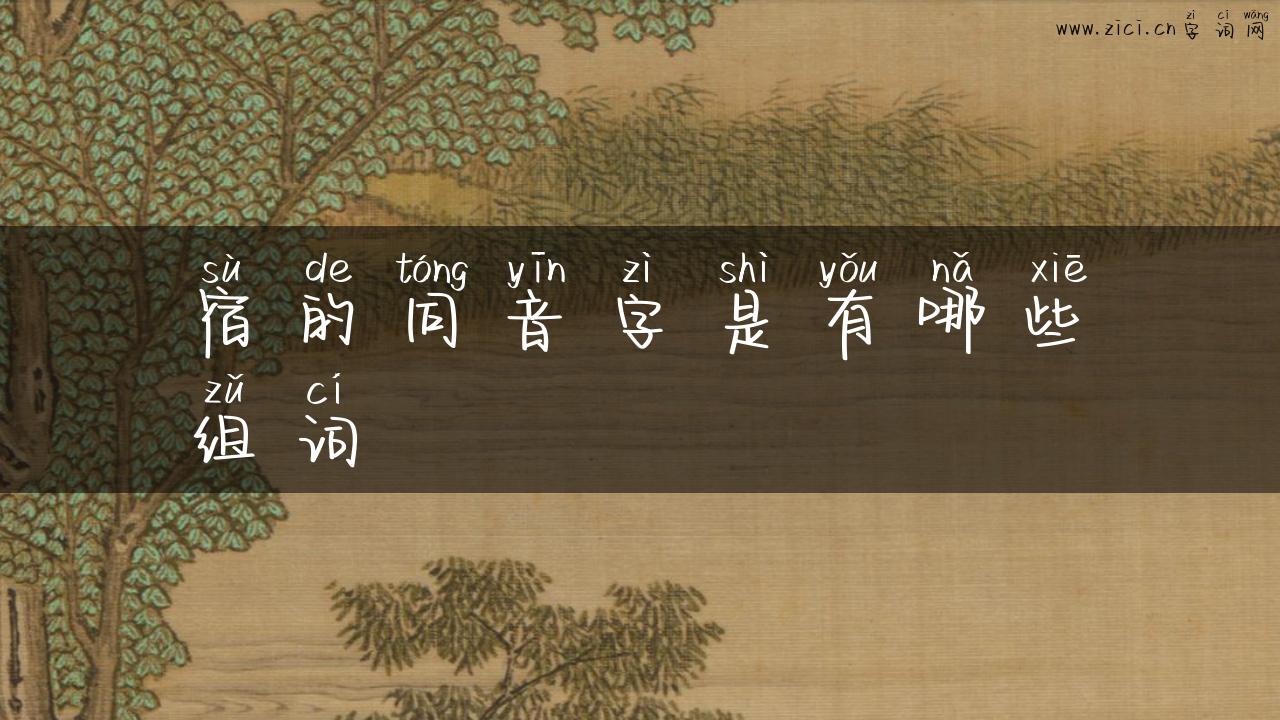 zì cí wǎng
www.zici.cn 字 词 网
sù de tóng yīn zì shì yǒu nǎ xiē
宿 的 同 音 字 是 有 哪 些
zǔ cí
组 词